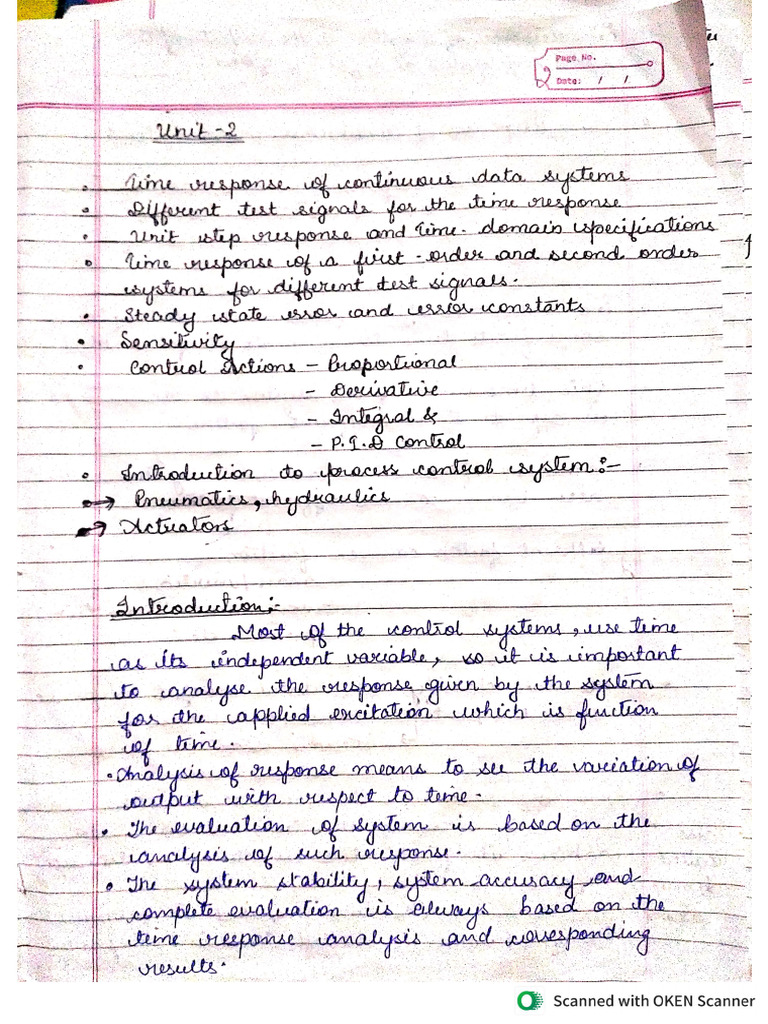 Page No.
Date: / /
Unit -2
• Time response of continuous data systems
• Different test signals for the time response
• Unit step response and time-domain specifications
• Time response of a first-order and second order
systems for different test signals.
• Steady state error and error constants
• Sensitivity
• Control Actions - Proportional
- Derivative
- Integral &
- P.I.D Control
• Introduction to process control system:-
→ Pneumatics, hydraulics
→ Actuators
Introduction:-
Most of the control systems, use time
as its independent variable, so it is important
to analyse the response given by the system
for the applied excitation which is function
of time.
• Analysis of response means to see the variation of
output with respect to time.
• The evaluation of system is based on the
analysis of such response.
• The system stability, system accuracy and
complete evaluation is always based on the
time response analysis and corresponding
results.
Scanned with OKEN Scanner